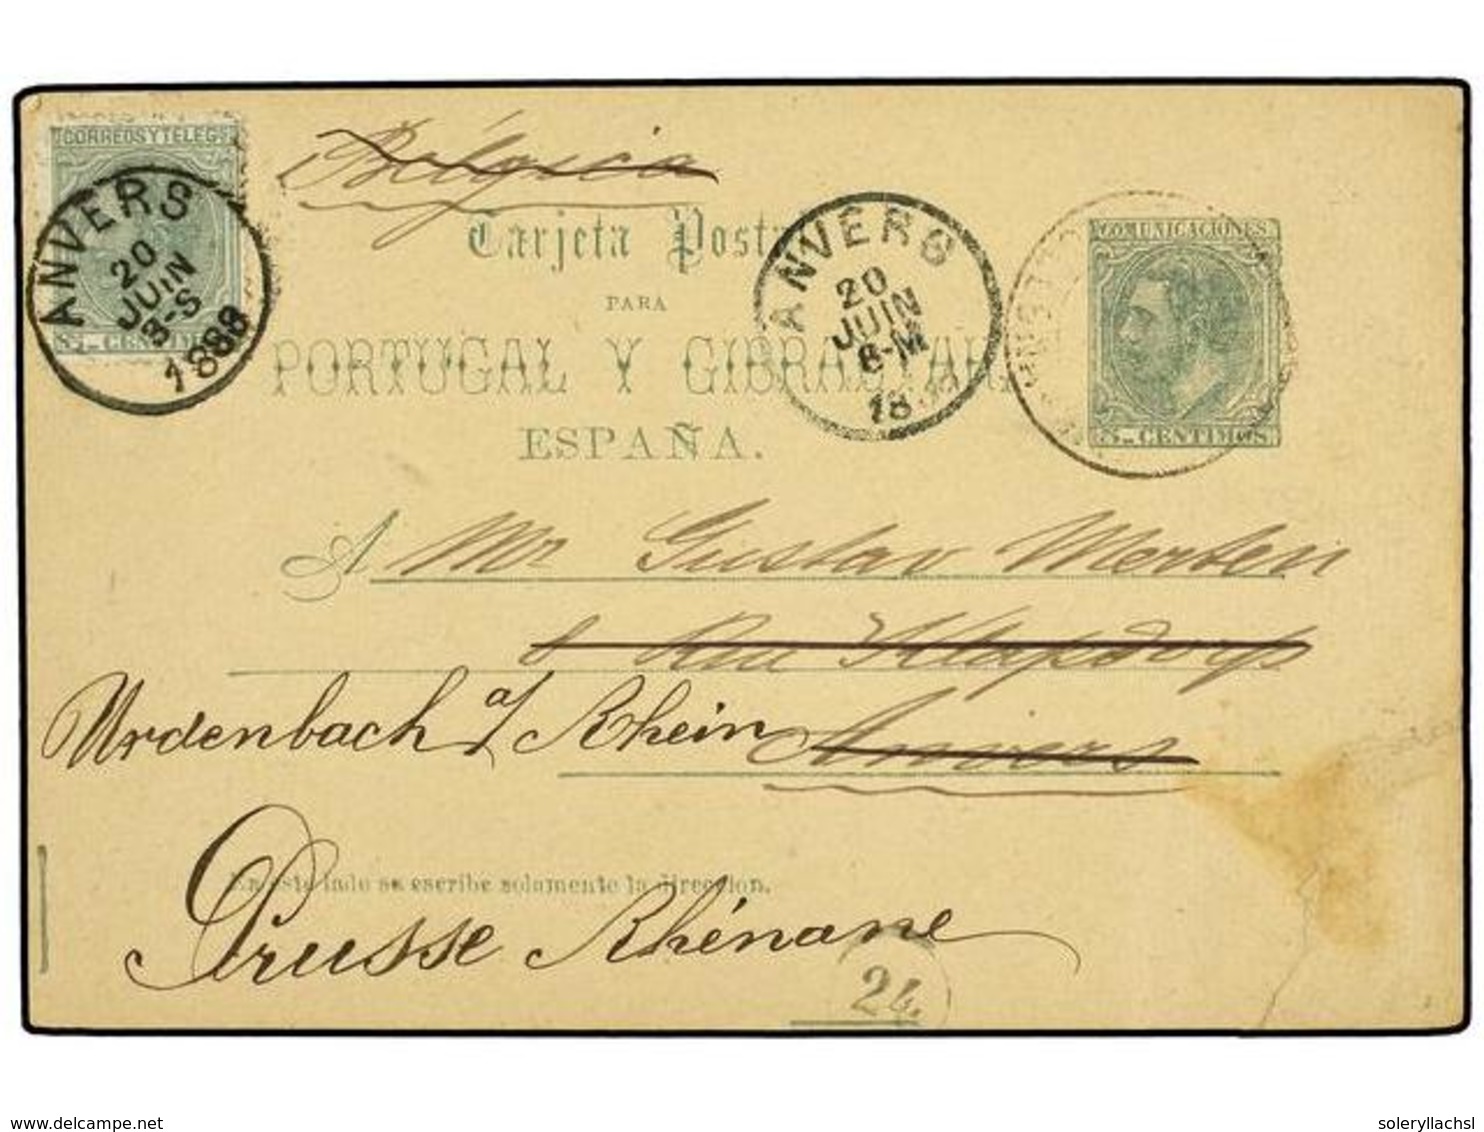 CORREOS Y TELEGS
5 C. CENTIM
ANVERS
20
JUIN
3-S
1888
Bélgica
Tarjeta Posta
PARA
PORTUGAL Y GIBRALTAR
ESPAÑA.
ANVERS
20
JUIN
8-M
18
COMUNICACIONES
5 C. CENTIMOS
A Mr Gustav Merten
8 Rue Klapdorp
Anvers
Urdenbach a/ Rhein
En este lado se escribe solamente la direccion.
Prusse Rhénane
24.
www.delcampe.net
soleryllachsl